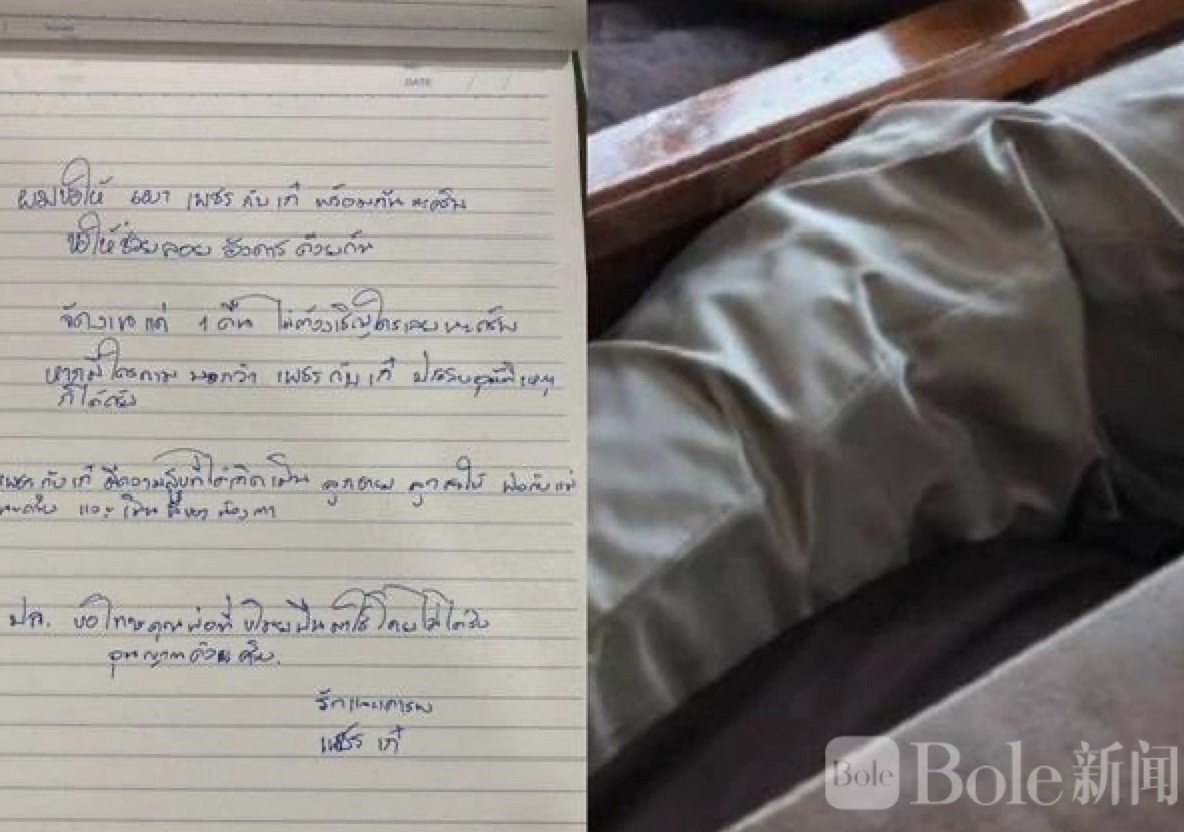 DATE / /
ผมขอให้ เผา เพชร กับ เก๋ พร้อมกัน นะครับ
ขอให้ช่วยลอย อังคาร ด้วยกัน
จัดงาน แค่ 1 คืน ไม่ต้องเชิญใครเลย นะครับ
หากมีใครถาม บอกว่า เพชร กับ เก๋ ประสบอุบัติเหตุ
ก็ได้ครับ
เพชร กับ เก๋ มีความสุขที่ได้เกิดเป็น ลูกชาย ลูกสะใภ้ พ่อกับแม่
นะครับ และ เป็น
ปล. ขอโทษคุณพ่อที่ ปืน โดยไม่ได้รับ
อนุญาตด้วยครับ.
รักและเคารพ
เพชร เก๋
Bole
Bole新闻